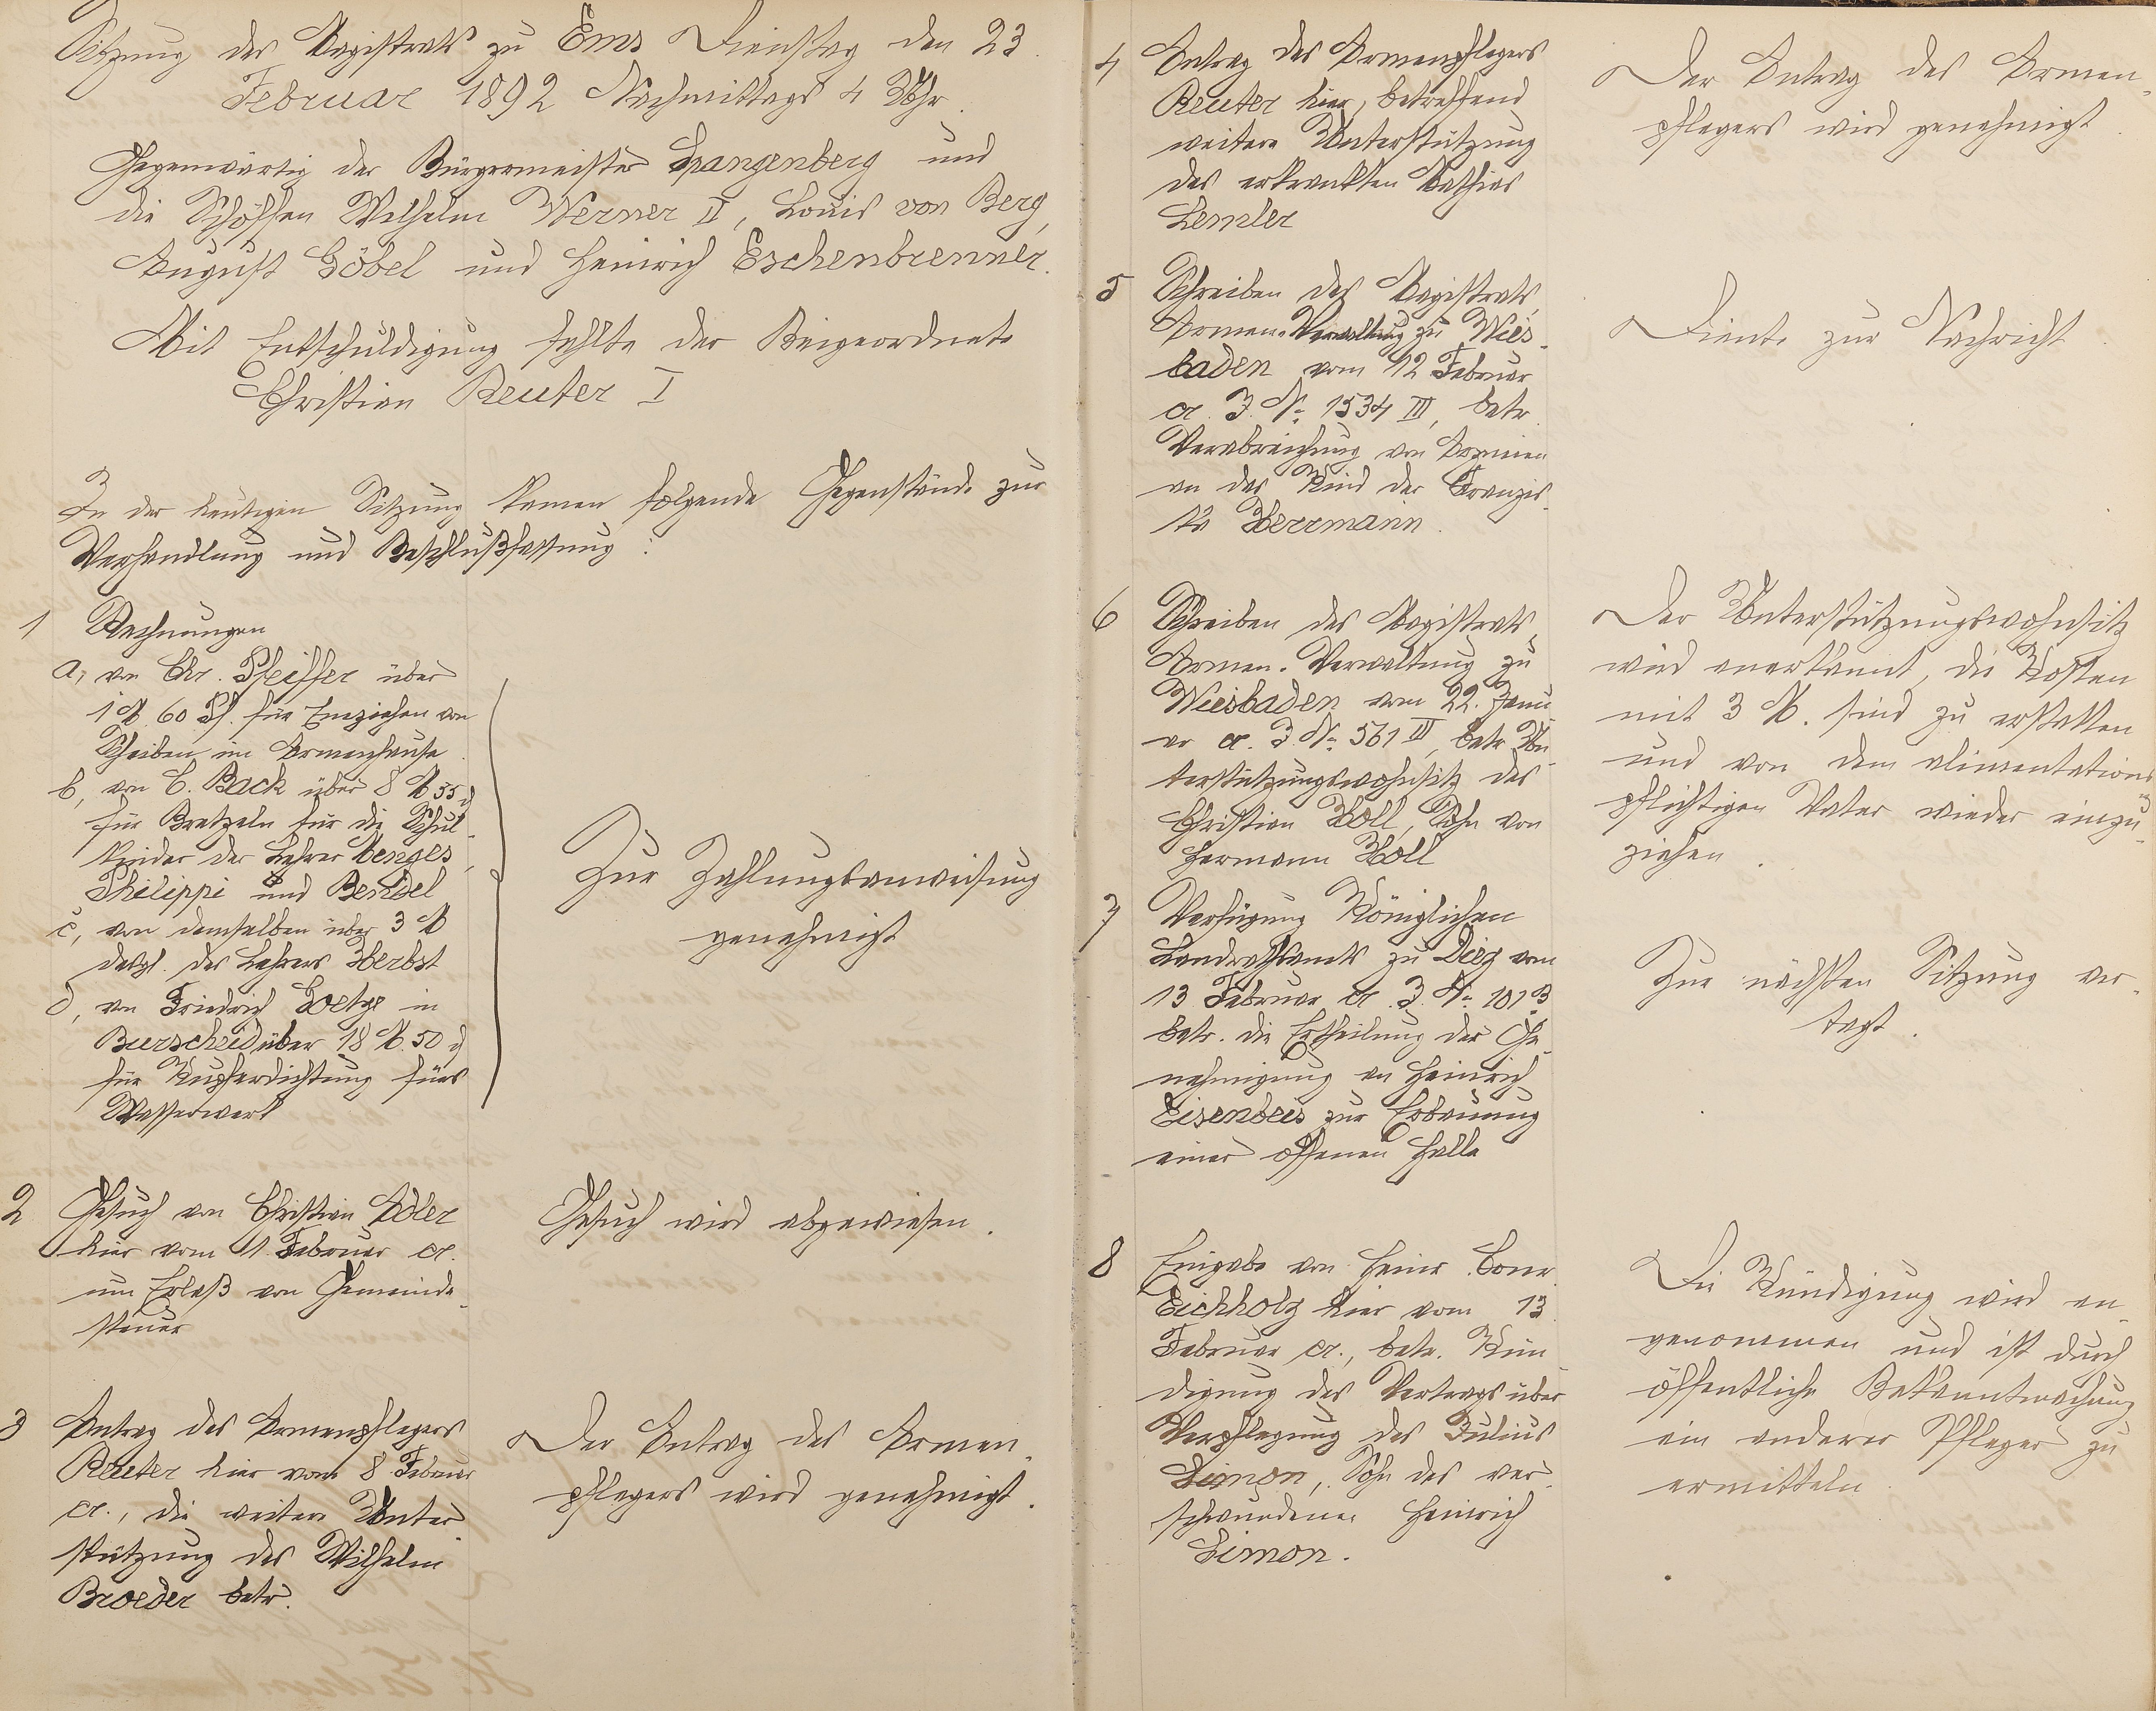 Sitzung des Magistrats zu Ems Dienstag den 23.
Februar 1892 Nachmittags 4 Uhr.
Gegenwärtig der Bürgermeister Spangenberg und
die Schöffen Wilhelm Werner II, Louis von Berg,
August Göbel und Heinrich Eschenbrenner.
Mit Entschuldigung fehlte der Beigeordnete
Christian Reuter I
In der heutigen Sitzung kamen folgende Gegenstände zur
Verhandlung und Beschlußfassung:
1 Rechnungen
a, von Chr. Pfeiffer über
1 M. 60 Pf. für Einziehen von
Scheiben im Armenhause.
b, von C. Back über 8 M 55 d
für Bretzeln für die Schul-
kinder der Lehrer Menges,
Philippi und Bendel
c, von demselben über 3 M
desgl. des Lehrers Herbst
d, von Friedrich Goetze in
Burscheid über 18 M. 50 d
für Kupferdichtung fürs
Wasserwerk
Zur Zahlungsanweisung
genehmigt
2 Gesuch von Christian Adler
hier vom 1. Februar cr.
um Erlaß von Gemeinde-
steuer
Gesuch wird abgewiesen.
3 Antrag des Armenpflegers
Reuter hier vom 8 Februar
cr., die weitere Unter-
stützung des Wilhelm
Broeder betr.
Der Antrag des Armen-
pflegers wird genehmigt.
4 Antrag des Armenpflegers
Reuter hier, betreffend
weitere Unterstützung
des erkrankten Mathias
Lemler
Der Antrag des Armen-
pflegers wird genehmigt.
5 Schreiben des Magistrats
Armen-Verwaltung zu Wies-
baden vom 12 Februar
cr. J. No. 1534 III, betr.
Verabreichung von Arzneien
an das Kind der Franzis-
ka Herrmann.
Diente zur Nachricht.
6 Schreiben des Magistrats,
Armen-Verwaltung zu
Wiesbaden vom 22. Janu-
ar cr. J. No. 561 III, betr. Un-
terstützungswohnsitz des
Christian Holl, Sohn von
Hermann Holl
Der Unterstützungswohnsitz
wird anerkannt, die Kosten
mit 3 M. sind zu erstatten
und von dem alimentations-
pflichtigen Vater wieder einzu-
ziehen.
7 Verfügung Königlichen
Landrathsamts zu Diez vom
13 Februar cr. J. No. 101 B
betr. die Ertheilung der Ge-
nehmigung an Heinrich
Eisenbeis zur Erbauung
einer offenen Halle
Zur nächsten Sitzung ver-
tagt.
8 Eingabe von Heinr. Conr.
Eichholz hier vom 13
Februar cr., betr. Kün-
digung des Vertrags über
Verpflegung des Julius
Simon, Sohn des ver-
schwundenen Heinrich
Simon.
Die Kündigung wird an-
genommen und ist durch
öffentliche Bekanntmachung
ein anderer Pfleger zu
ermitteln.